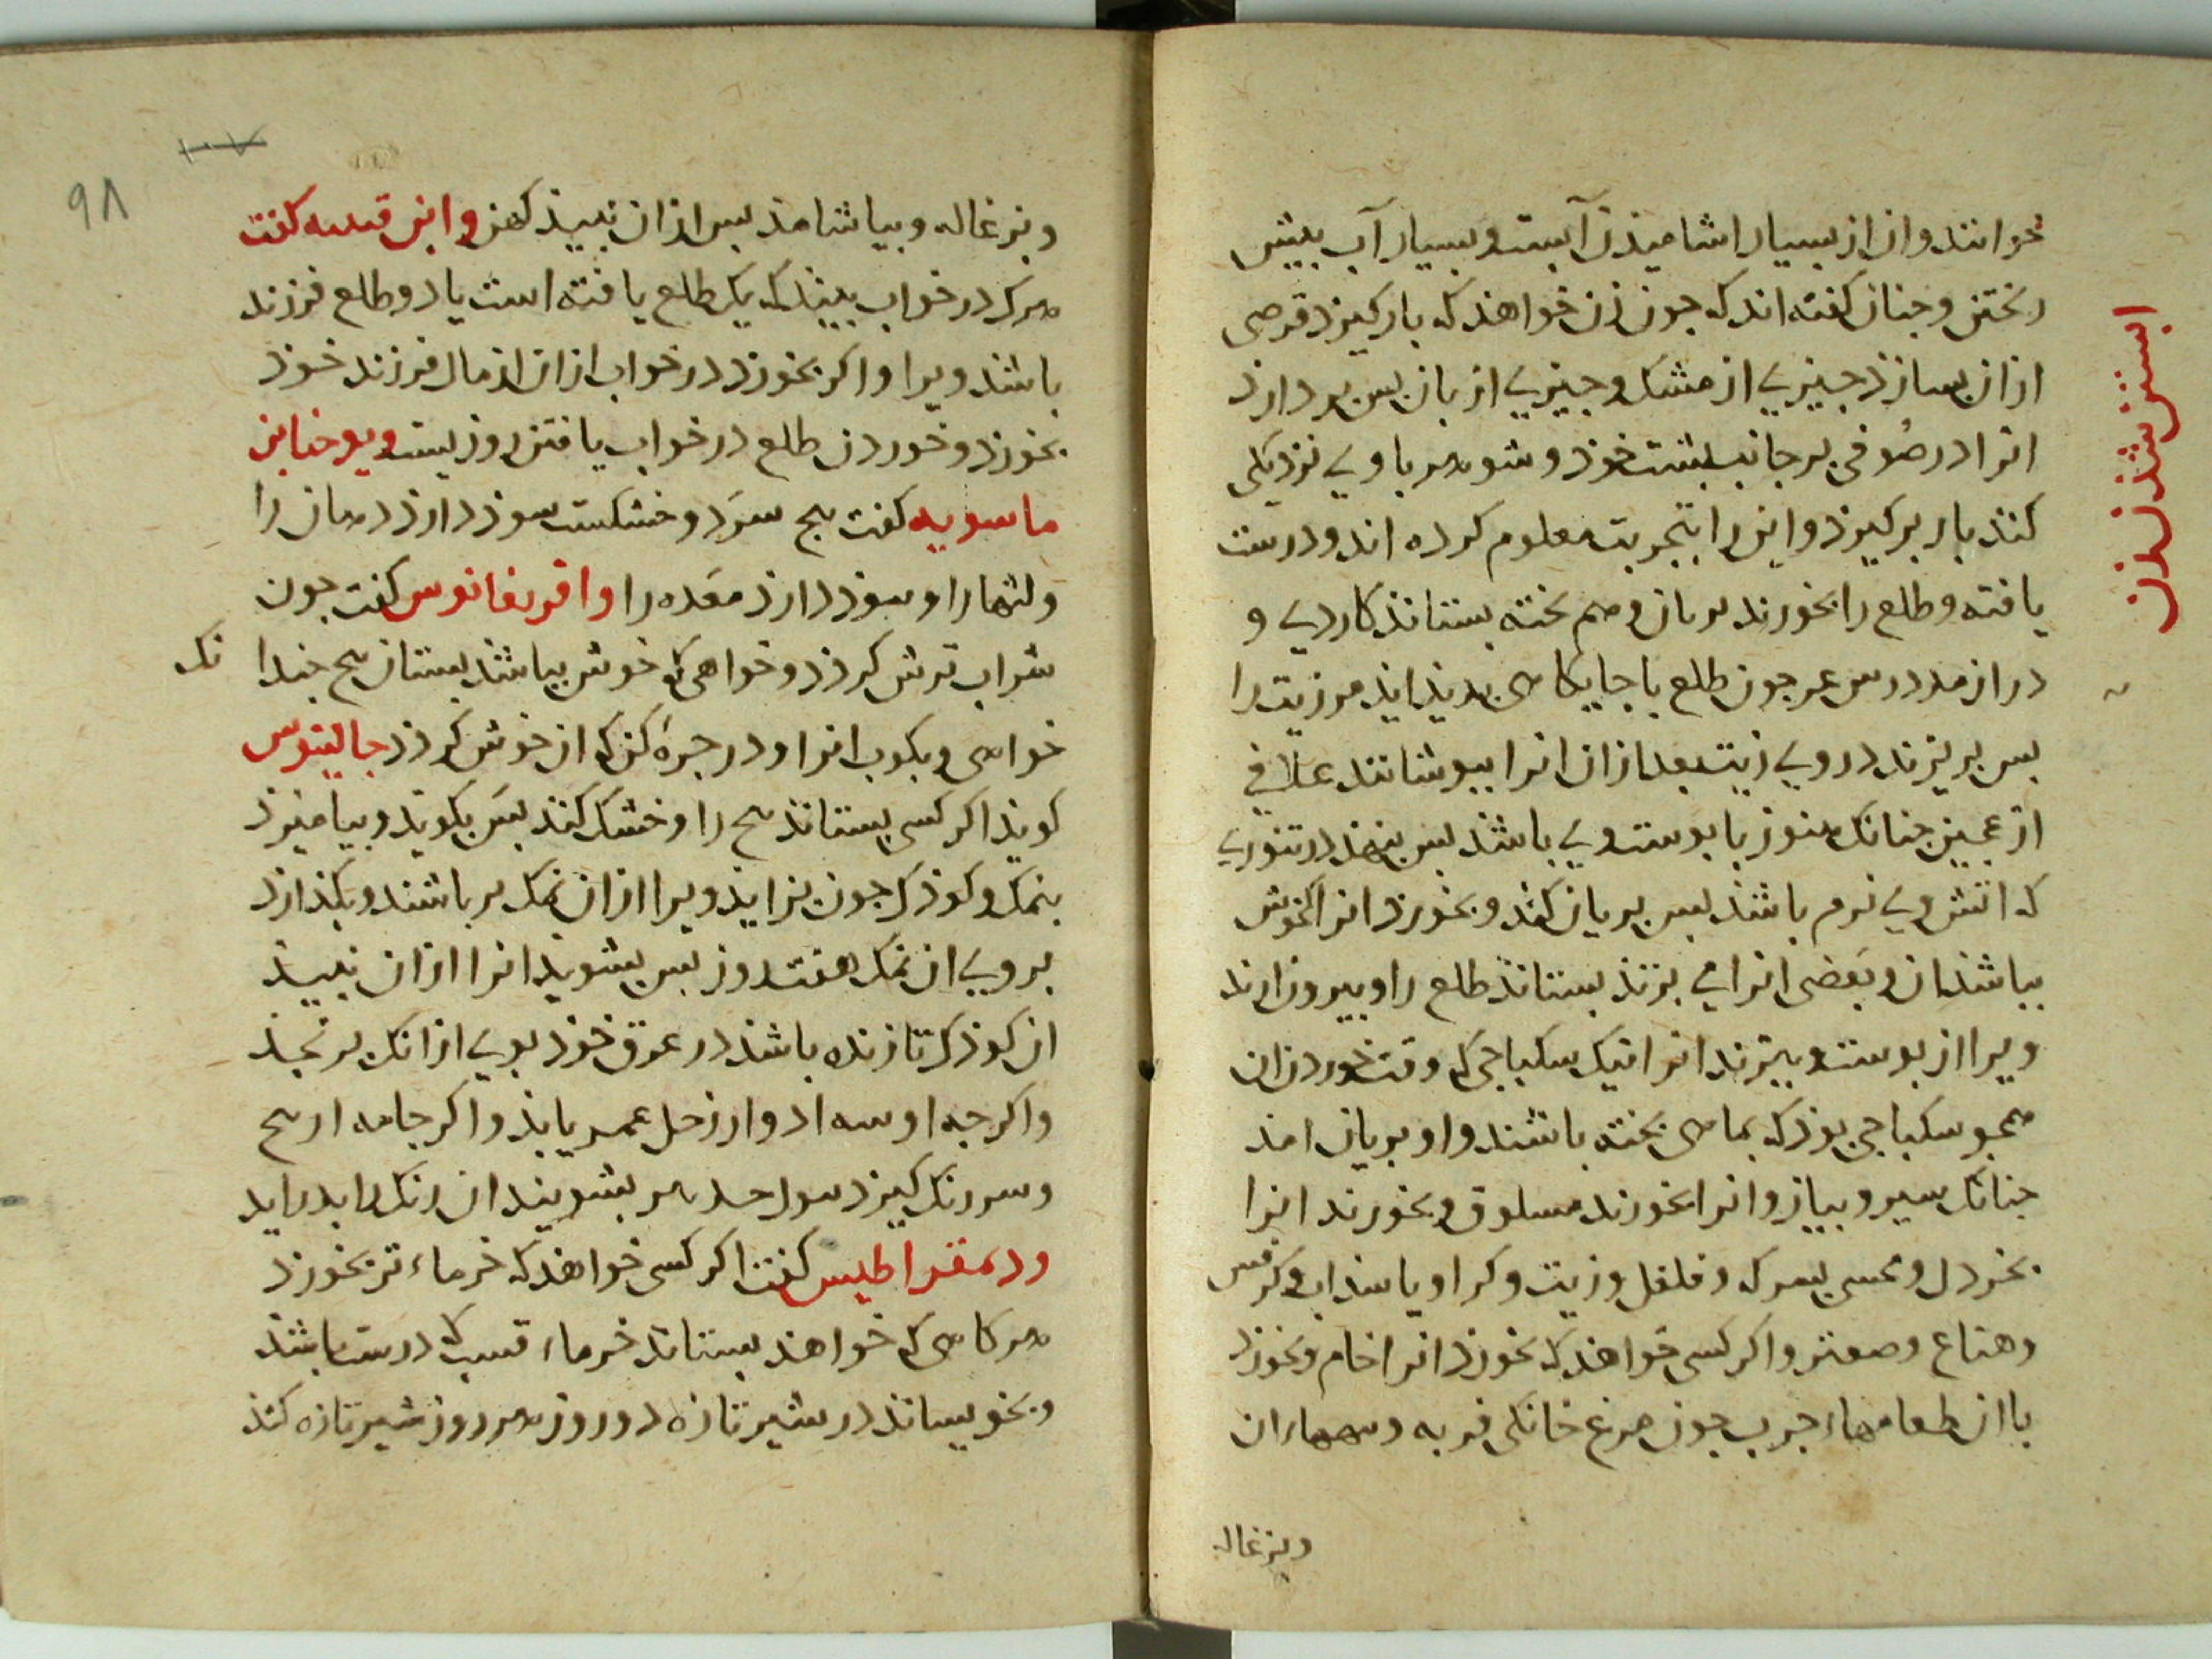 خوانند و ان از بسیار اشامیدن آبست و بسیار آب بیش
ریختن و جنان کفته اند که جون زن خواهد که بار کیرد قرصی
ازان بسازد جیزی از مشک و جیزی از بان بس بردارد
انرا در صوفی بر جانب بشت خوذ و شوهر با وی نزدیکی
کند بار برکیرد و این را بتجربت معلوم کرده اند و درست
یافته و طلع را بخورند بریان و هم بخته بستانند کاردی و
جون طلع تا جایکاهی بدیذ ایذ
بس بریزند در وی زیت بعد ازان انرا ببوشانند غلافی
از عجین جنانک هنوز با بوست وی باشذ بس بنهند در تنوری
که اتش وی نرم باشذ بس بریان کند و بخورد انرا که خوش
بباشد ان و بعضی انرا می بزند بستانند طلع را و بیرون ارند
ویرا از بوست و ببزند انرا نیک سکباجی که وقت خوردن ان
همجو سکباجی بوذ که بماهی بخته باشند و او بریان امذ
جنانک سیر و بیاز و انرا بخورند مسلوق و بخورند انرا
بخردل و سرکه و فلفل و زیت و کراویا سذاب و کرفس
و نعناع و صعتر و اکر کسی خواهد که بخورد انرا خام و بخورد
با ان طعامهاء جرب جون مرغ خانکی فربه
وبزغاله
ابستن شدن زن
٩٨
و بزغاله و بیاشامذ بس ازان نبیذ کهن و ابن قتیبه کفت
هرک در خواب بیند که یک طلع یافته است یا دو طلع فرزند
باشد ویرا و اکر بخورد در خواب ازان از مال فرزند خوذ
بخورد و خوردن طلع در خواب یافتن روزیست و یوحنا بن
ماسویه کفت بلح سرد و خشکست سوذ دارد دهان را
و لثها را و سوذ دارد معده را و افریقانوس کفت جون
شراب ترش کردد و خواهی که خوش بباشد بستان بلح جندا
نک
خواهی و بکوب انرا و در جره کن که ان خوش کردد جالینوس
کویند اکر کسی بستاند بلح را و خشک کند بس بکوبد و بیامیزد
بنمک و کوذک جون بزاید ویرا ازان نمک بر باشند و بکذارد
بروی ان نمک هفت روز بس بشوید انرا ازان نبیند
ان کوذک تا زنده باشد در عرق خوذ بوی ازانک برنجذ
و اکرجه او سه ادوار زحل عمر یابذ و اکر جامه از بلح
رنک کیرد بشویند ان رنک
و دیمقراطیس کفت اکر کسی خواهد که خرماء تر بخورد
هرکاهی که خواهد بستاند خرماء قسب که درست باشد
و بخویساند در شیر تازه دو روز هر روز شیر تازه کند